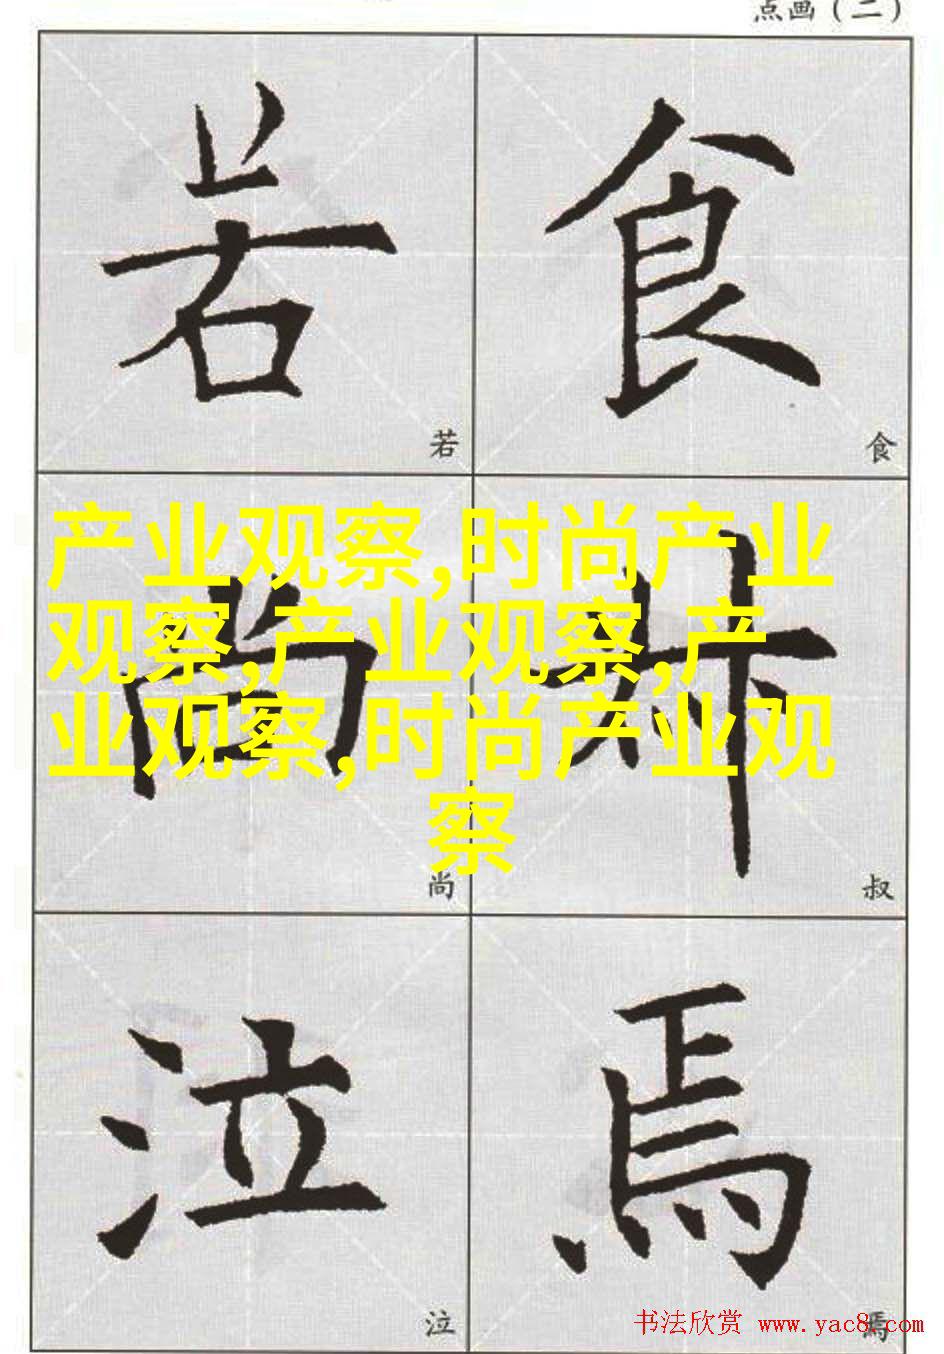 点画（二）
若
食
若
食
产业观察,时尚产业
观察,产业观察,产
业观察,时尚产业观
察
尚
叔
尚
叔
泣
焉
泣
焉
书法欣赏 www.yac8.com